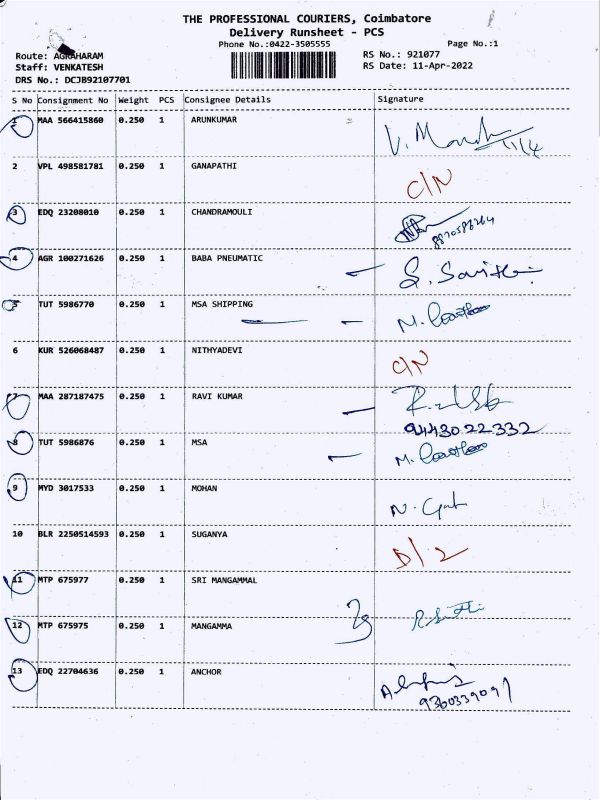 THE PROFESSIONAL COURIERS, Coimbatore
Delivery Runsheet - PCS
Phone No.:0422-3505555
Page No.:1
Route: AGRAHARAM
RS No.: 921077
Staff: VENKATESH
RS Date: 11-Apr-2022
DRS No.: DCJB92107701
S No Consignment No Weight PCS Consignee Details Signature
1 MAA 566415860 0.250 1 ARUNKUMAR
2 VPL 498581781 0.250 1 GANAPATHI C/N
3 EDQ 23208010 0.250 1 CHANDRAMOULI
4 AGR 100271626 0.250 1 BABA PNEUMATIC
5 TUT 5986770 0.250 1 MSA SHIPPING
6 KUR 526068487 0.250 1 NITHYADEVI C/N
7 MAA 287187475 0.250 1 RAVI KUMAR
9443022332
8 TUT 5986876 0.250 1 MSA
9 MYD 3017533 0.250 1 MOHAN
10 BLR 2250514593 0.250 1 SUGANYA D/2
11 MTP 675977 0.250 1 SRI MANGAMMAL
12 MTP 675975 0.250 1 MANGAMMA
13 EDQ 22704636 0.250 1 ANCHOR